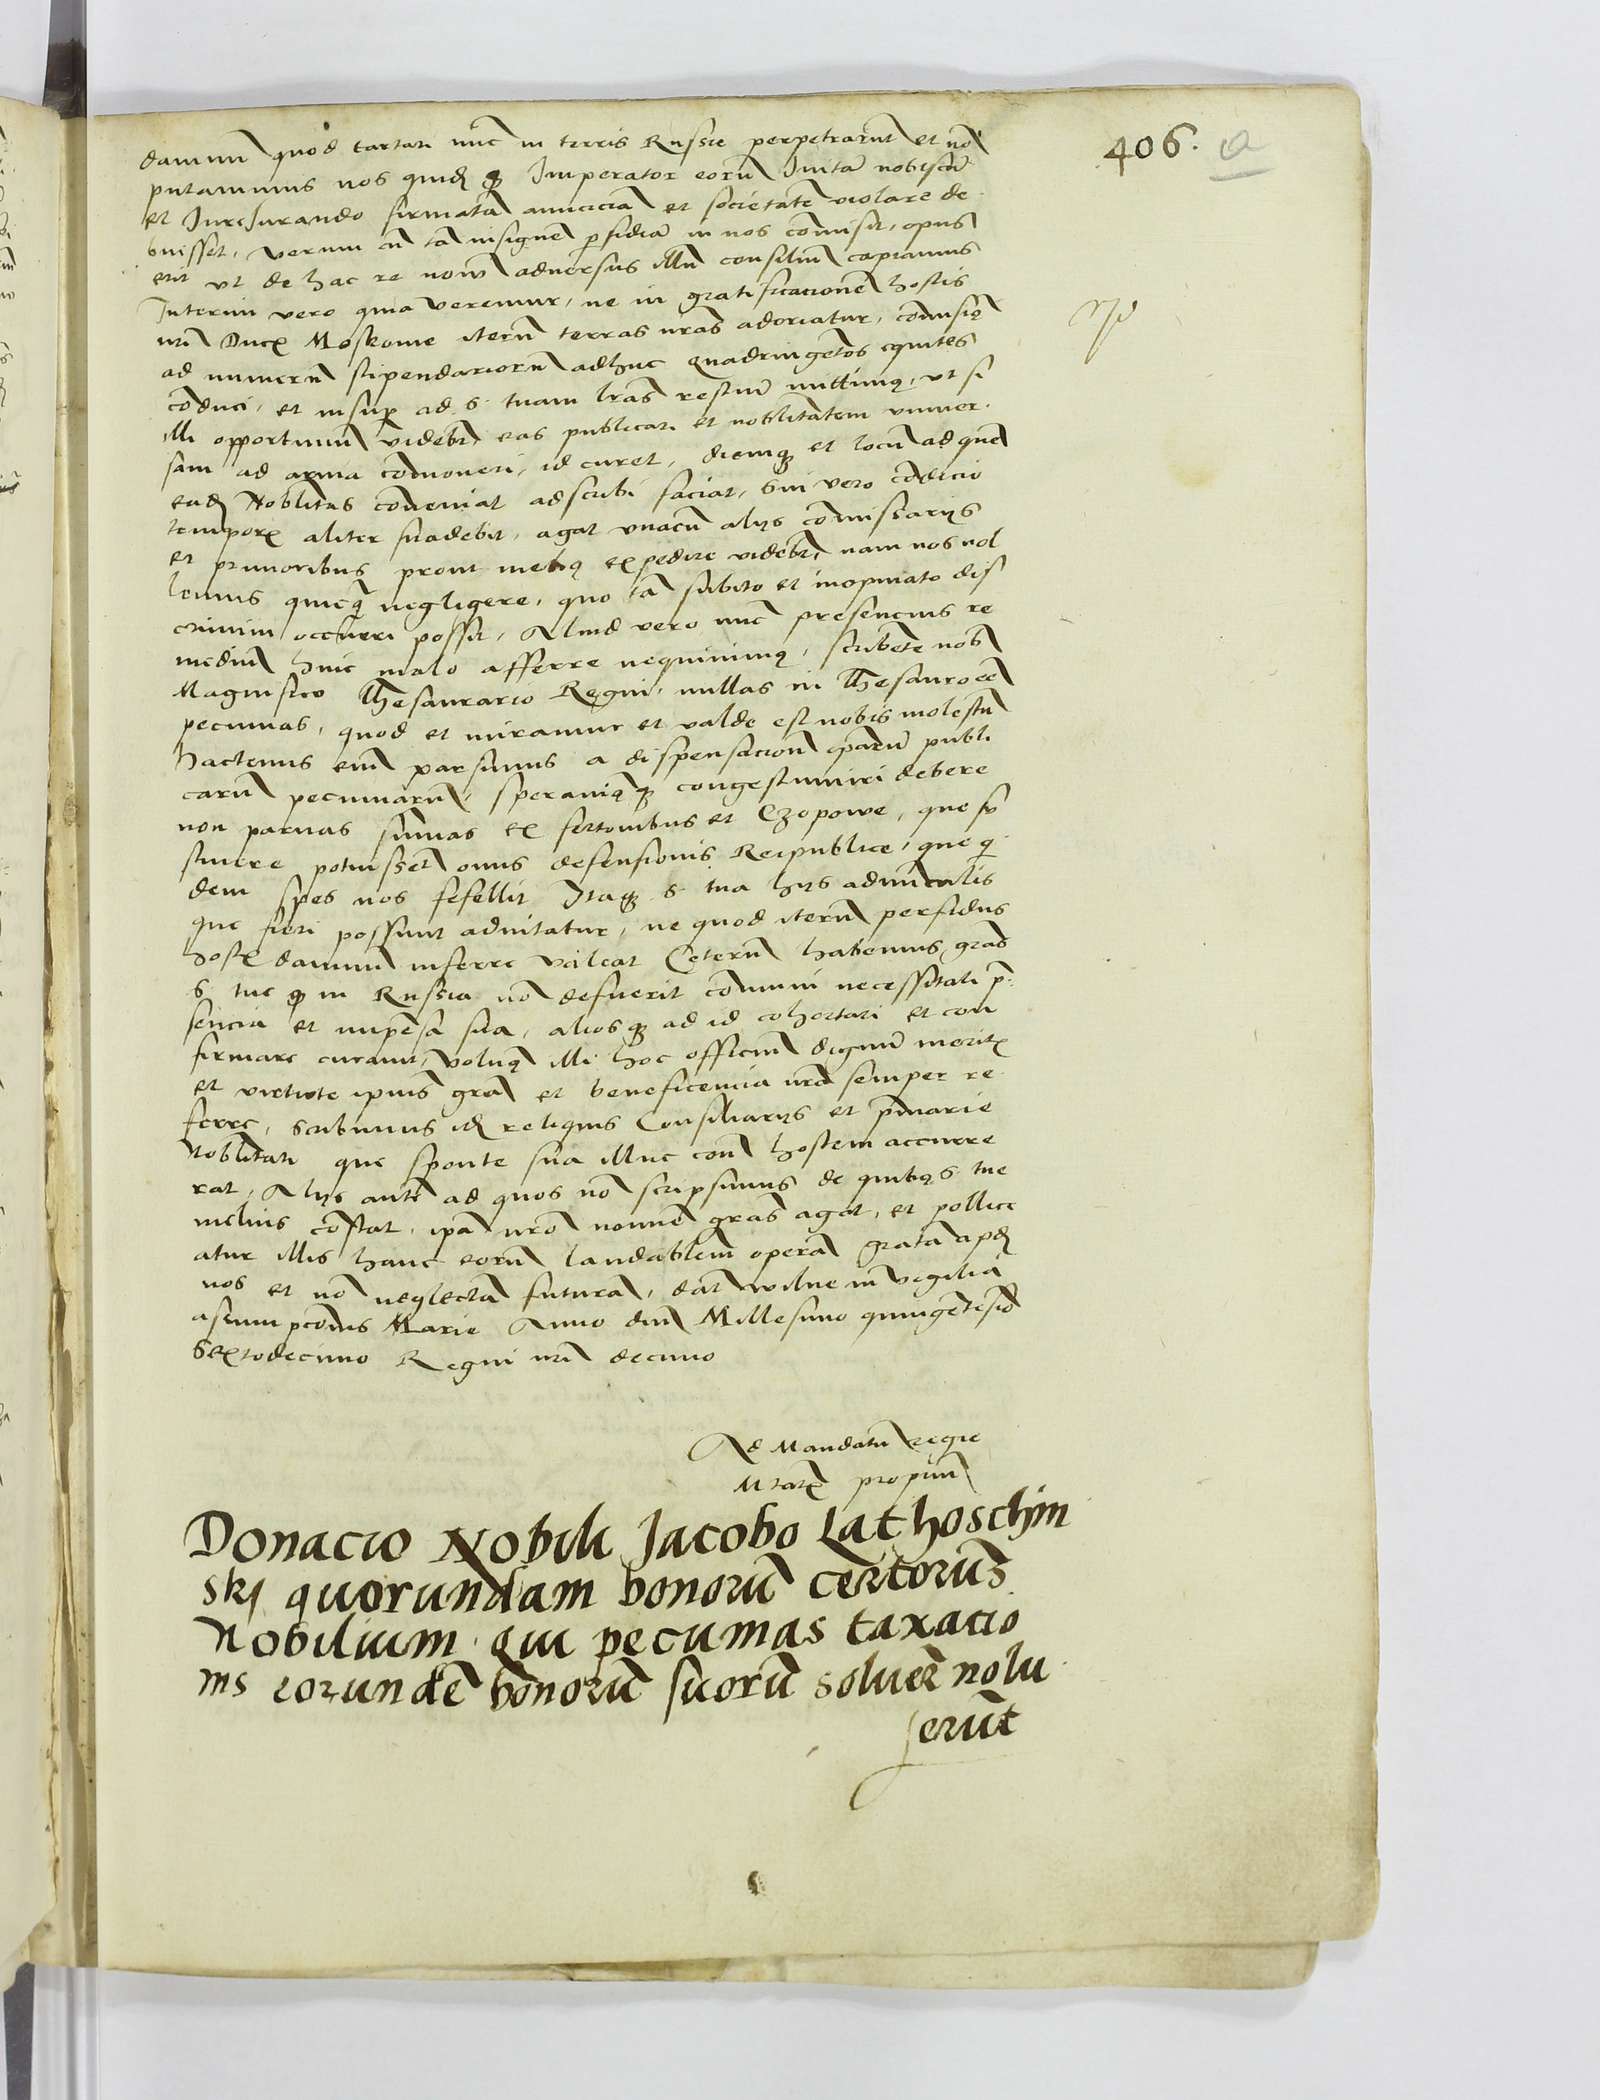 406.
damnu quod tartari nuc in terris Russie perpetrarut et no
putamus nos quide q Imperator eoru Inita nobiscu
et Jureiurando firmata amicicia et societate violare de
buisset, verum cu ta insigne pfidia in nos comisit, opus
erit ut de hac re nou adversus illu consiliu capiamus
Interim vero quia veremur, ne in gratificacione hostis
nri Ducis Moskouie iteru terras nras adoriatur, comisim9
ad numeru stipendarioru adhuc quadringetos equites
coduci, et insup ad S. tuam lras restiu mittim9, ut si
illi opportunu videbr eas publicari et nobilitatem univer
sam ad arma comoueri, id curet, diemq et locu ad que
eade Nobilitas coueniat adscribi faciat, Sin vero codicio
tempor aliter suadebit, agat unacu alijs comissarijs
et primoribus prout meli9 expedire videbr, nam nos nol
lemus quicq negligere, quo ta subito et inopinato dis
crimini occurri possit, Aliud vero nuc presencius re
mediu huic malo afferre nequiuim9, scribete nob
Magnifico Thesaurario Regni, nullas in Thesauro ee
pecunias, quod et miramur et valde est nobis molestu
hactenus eni parsimus a dispensacione
caru pecuniaru, speravim9 q congestum iri debere
non paruas sumas ex fertonibus et Czopowe, que su
stinere potuisset onus defensionis Reipublice, que qi
dem spes nos fefellit Itaq S. tua hijs adminiculis
que fieri possunt adnitatur, ne quod iteru perfidus
hostis damnu inferre valeat Ceteru habemus gras
S. tue q in Russia no defuerit comuni necessitati p
sencia et impesa sua, aliosq ad id cohortari et con
firmare curavit, volum9 illi hoc officiu dignu meritis
et virtute ipius gra et beneficencia nra semper re
ferre, scribimus ide reliquis Consiliarijs et pmarie
Nobilitati que sponte sua illuc cont hostem accurre
rat, Alijs aute ad quos no scripsimus de quib9 S. tue
melius costat, ipa nro nomine gras agat, et pollice
atur illis hanc eoru laudabilem opera grata apd
nos et no neglecta futura, dat wilne in vigilia
asumpcionis Marie Anno dni Millesimo quingetesimo
Sextodecimo Regni nri decimo
Ad Mandatu regie
Mtatis propriu
Donacio Nobili Jacobo Lathoschin
skj quorundam bonoru certoru
Nobilium qui pecunias taxacio
nis eorundē bonorū suorū soluere nolu
erūt